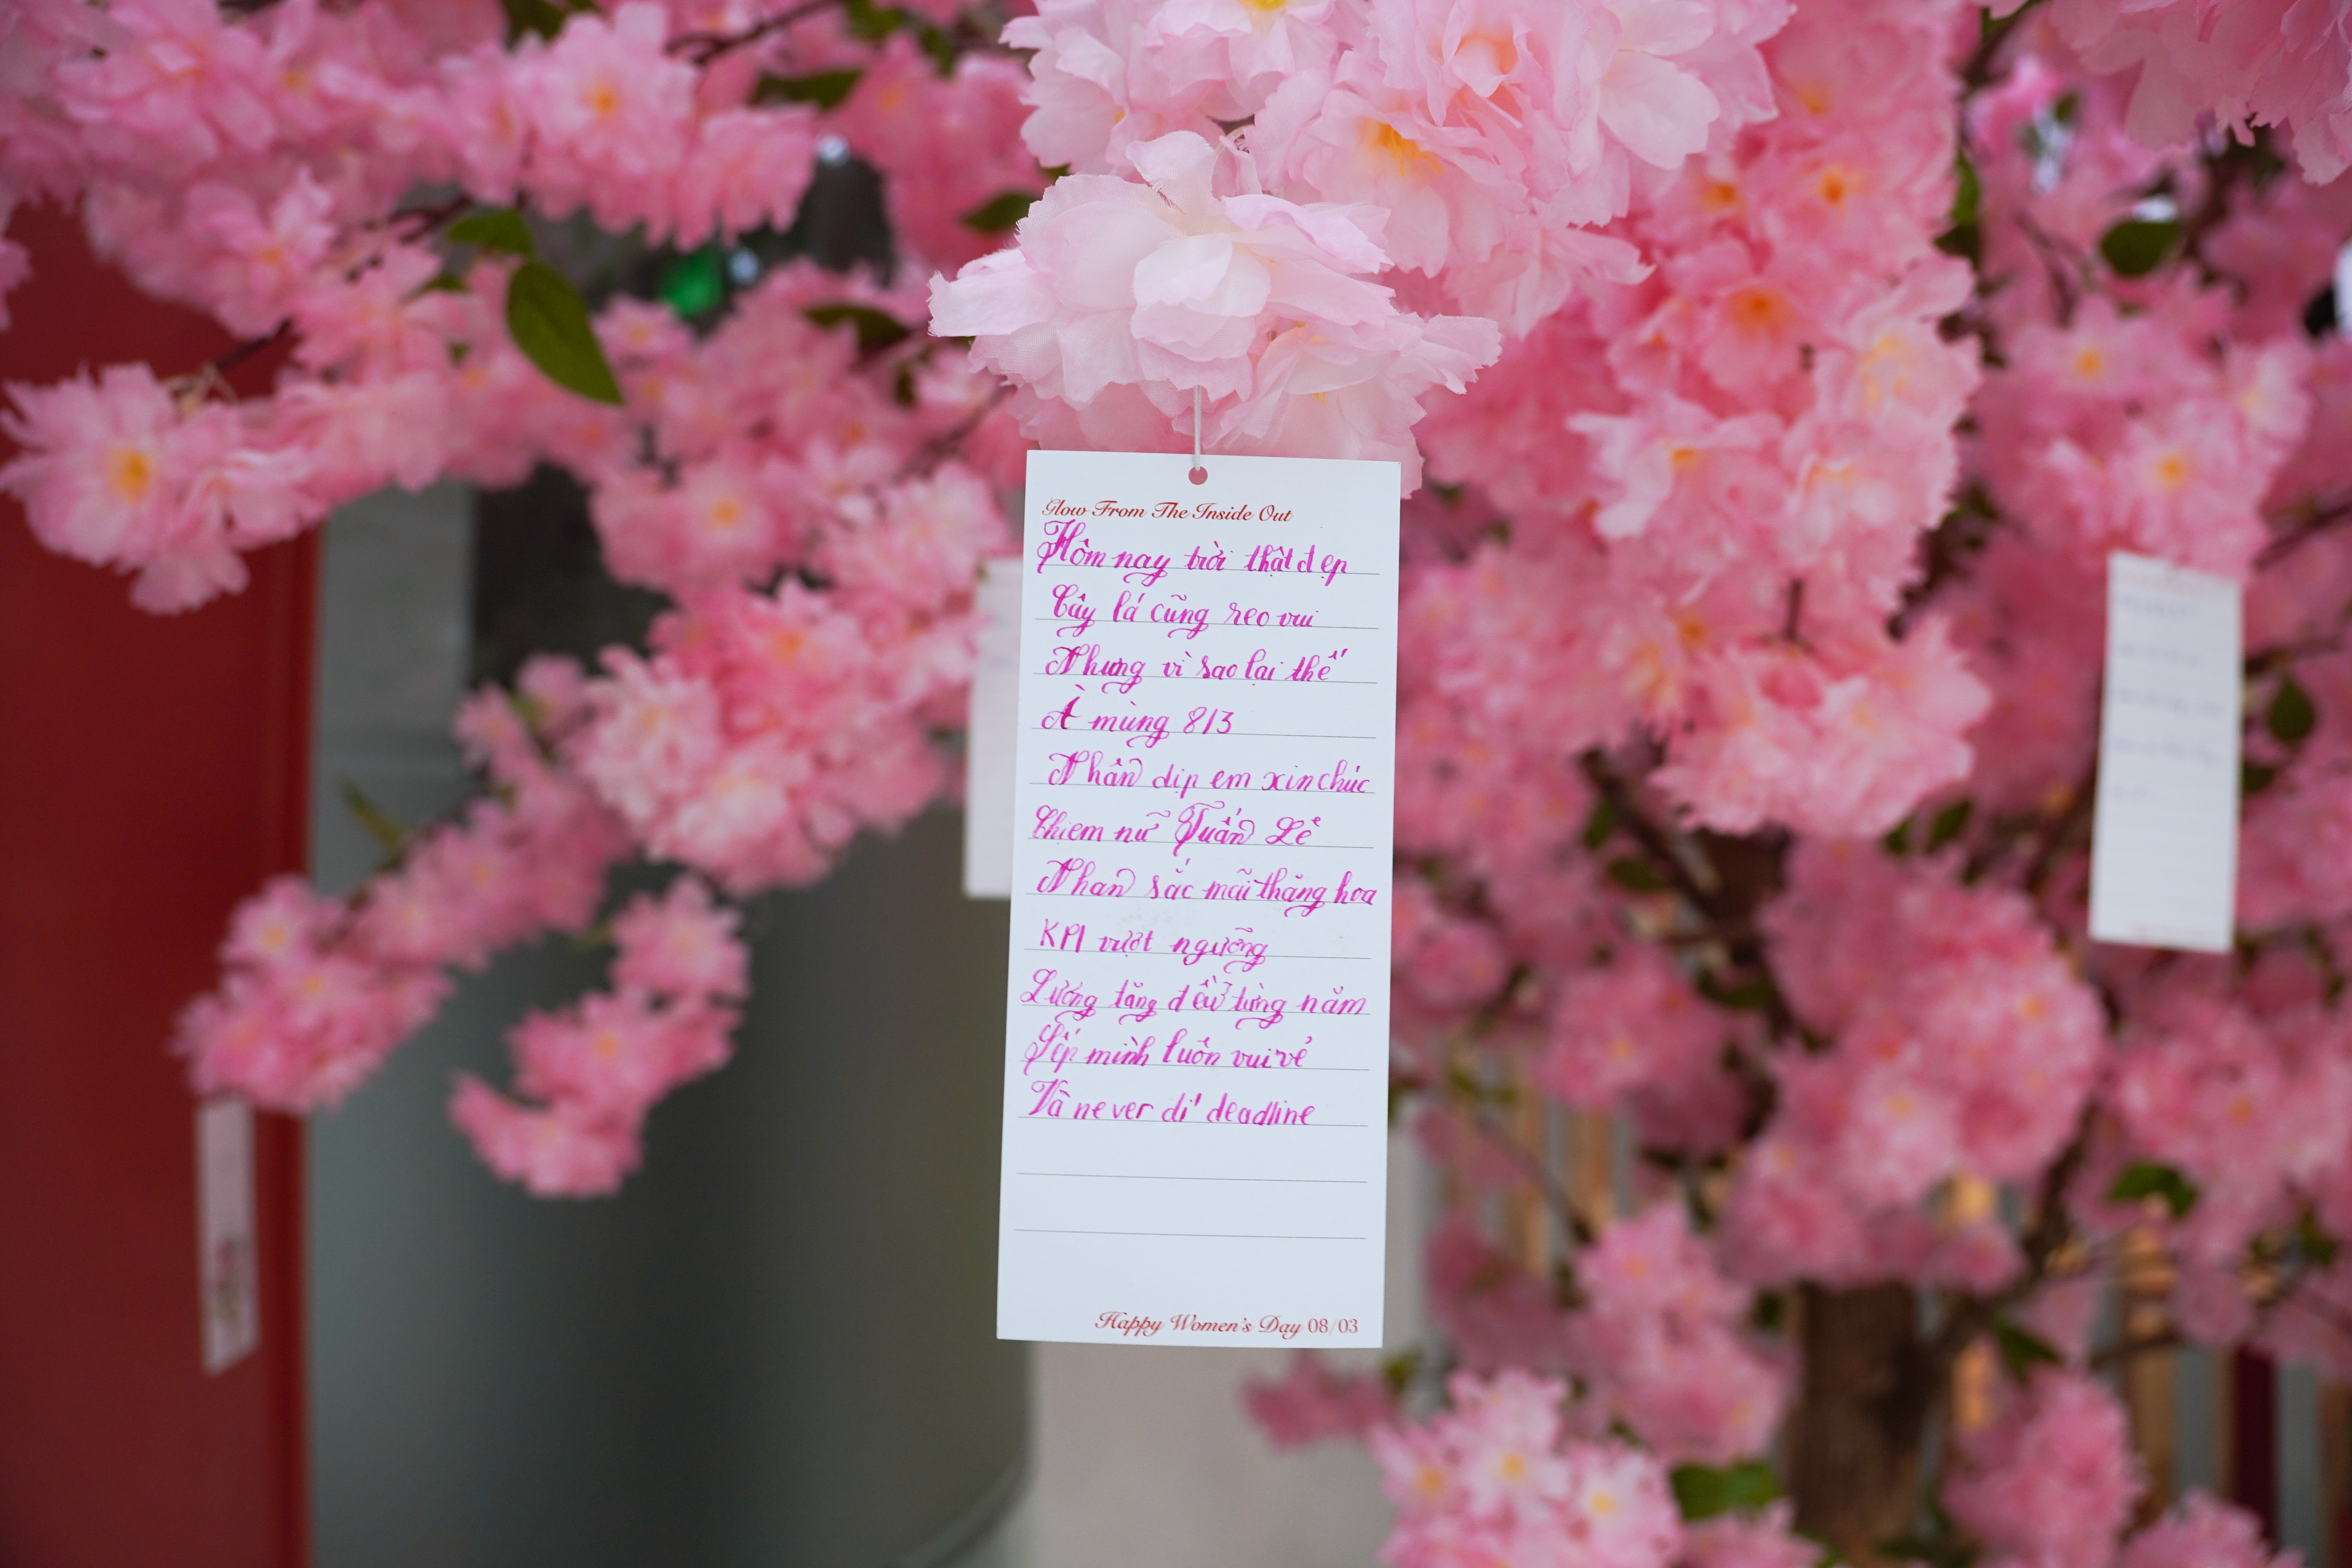 Glow From The Inside Out
Hôm nay trời thật đẹp
Cây lá cũng reo vui
Nhưng vì sao lại thế
À mùng 8/3
Nhân dịp em xin chúc
Chị em nữ Tuấn Lê
Nhan sắc mãi thăng hoa
KPI vượt ngưỡng
Lương tăng đều từng năm
Sếp mình luôn vui vẻ
Và never dí deadline
Happy Women's Day 08/03